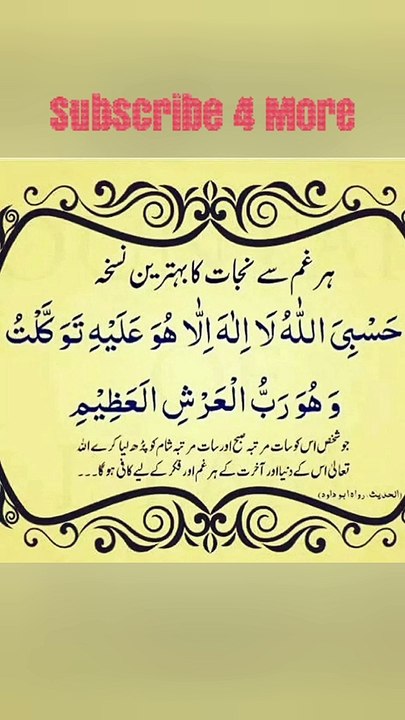 Subscribe 4 More
ہر غم سے نجات کا بہترین نسخہ
حَسْبِیَ اللّٰهُ لَا اِلٰهَ اِلَّا هُوَ عَلَیْهِ تَوَکَّلْتُ
وَ هُوَ رَبُّ الْعَرْشِ الْعَظِیْمِ
جو شخص اس کو سات مرتبہ صبح اور سات مرتبہ شام کو پڑھ لیا کرے اللہ
تعالیٰ اس کے دنیا اور آخرت کے ہر غم اور فکر کے لیے کافی ہوگا۔۔۔
(الحدیث۔ رواہ ابو داود)